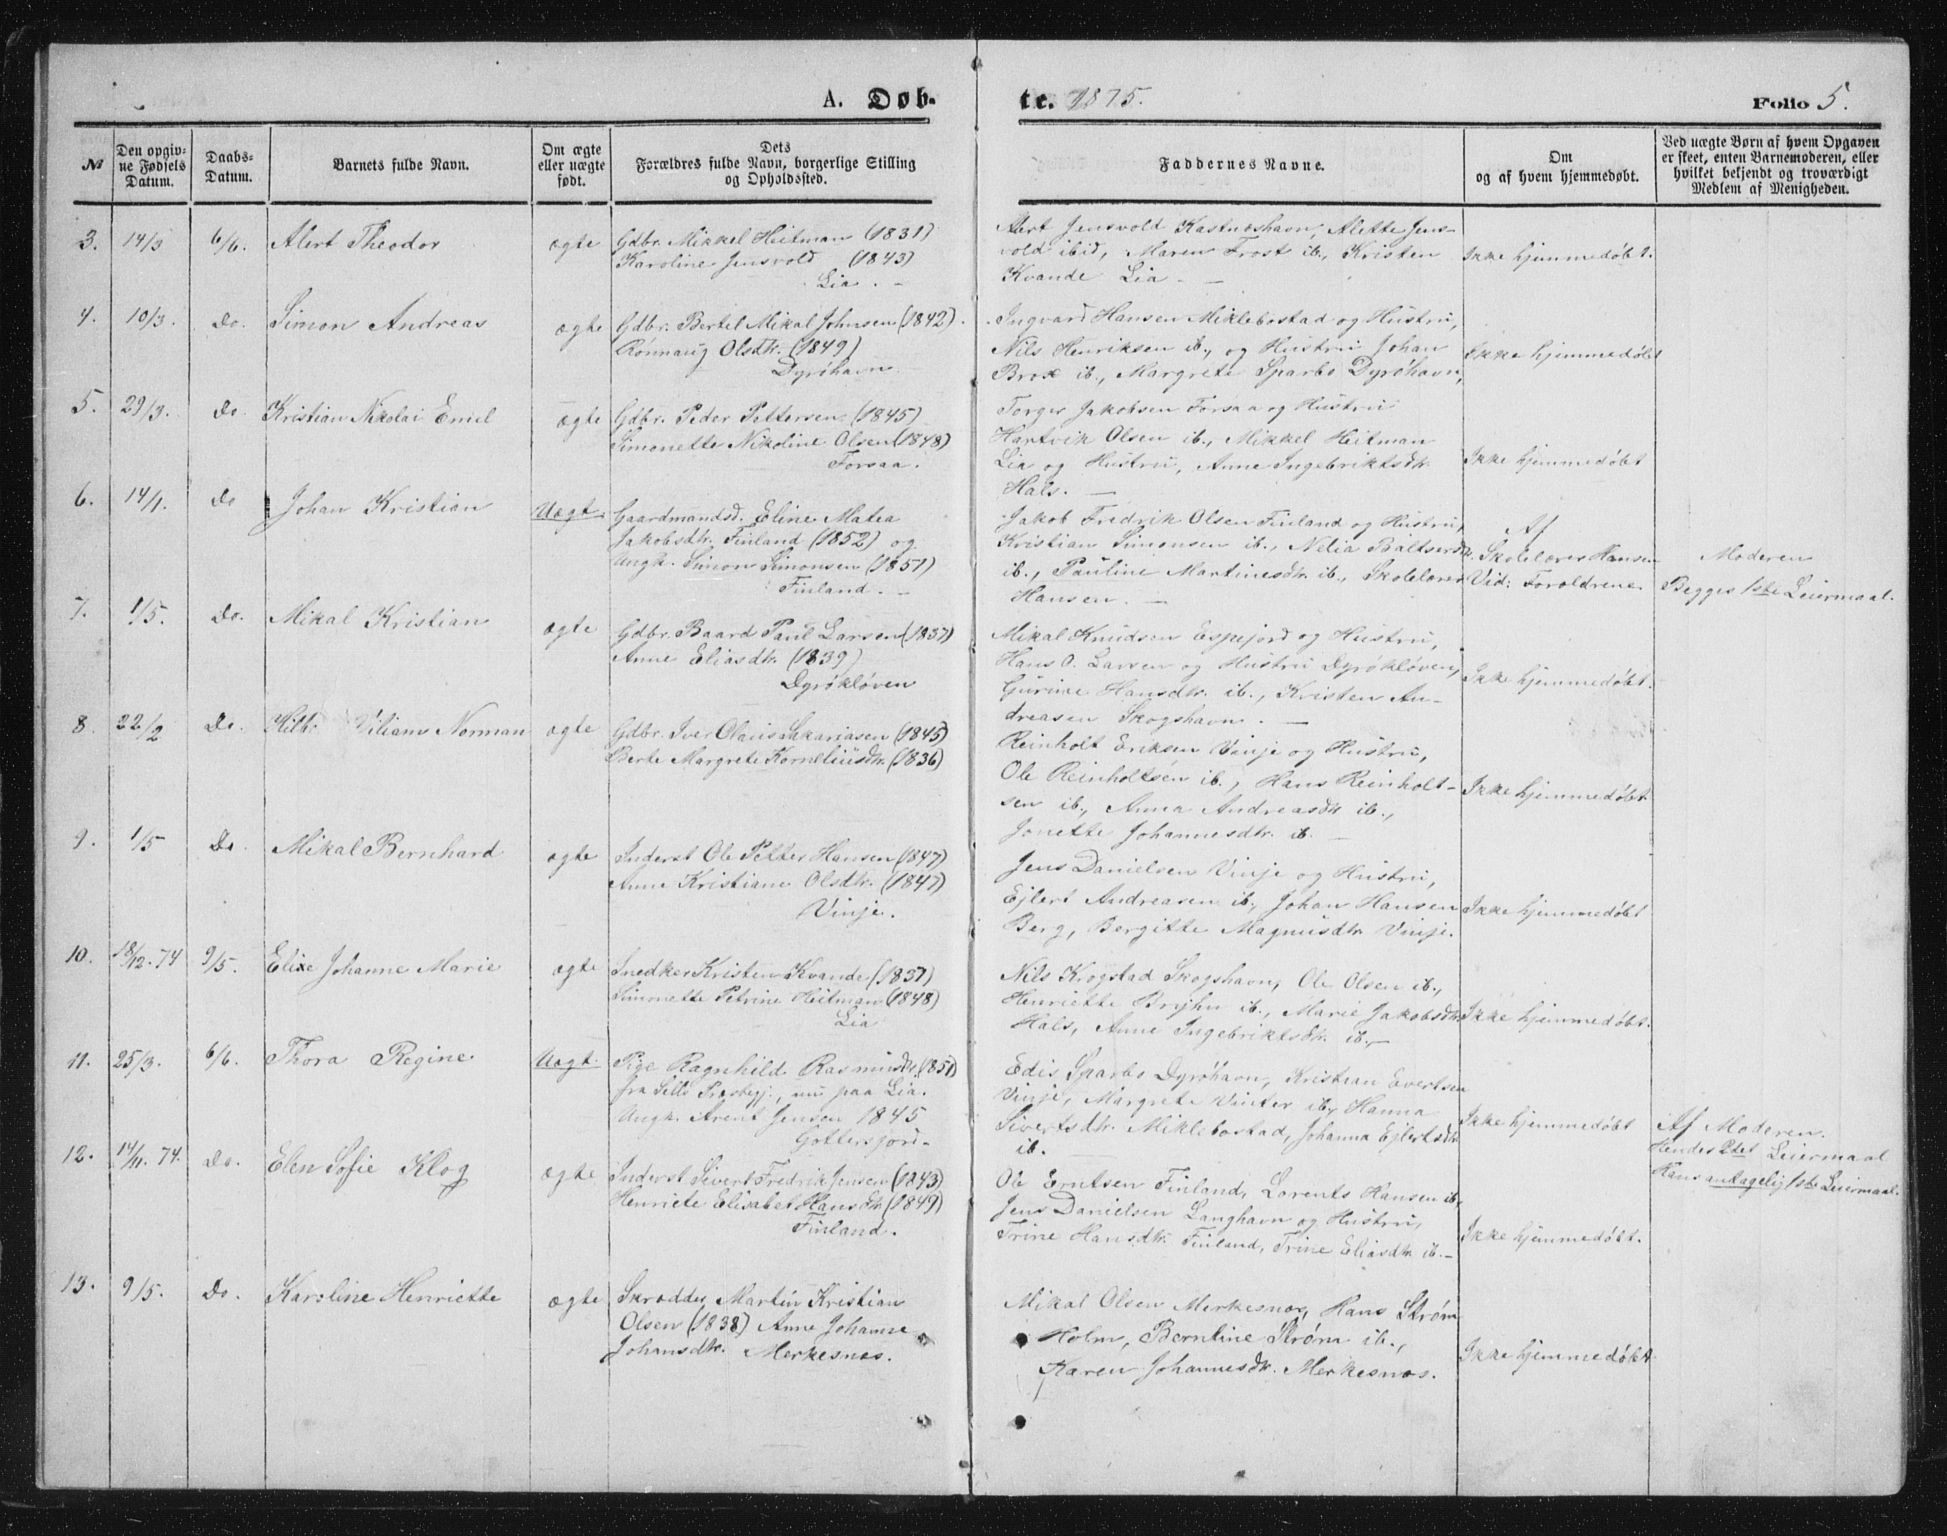 A. Døb- te. 1875. Folio 5.
№ | Den opgiv- | Daabs- | Barnets fulde Navn. | Om ægte | Dets | Faddernes Navne. | Om | Ved uægte Børn af hvem Opgaven
ne Fødsels | Datum. | eller uægte | Forældres fulde Navn, borgerlige Stilling | og af hvem hjemmedøbt. | er skeet, enten Barnemoderen, eller
Datum. | født. | og Opholdssted. | hvilket bekjendt og troværdigt
Medlem af Menigheden.
3. 14/3 6/6. Alert Theodor ægte
Gdbr. Mikkel Heitman (1831)
Karoline Jensvold (1843)
Lia. -
Alert Jensvold Kastneshavn, Alette Jens-
vold ibid, Maren Frost ib., Kristen
Kvande Lia. -
Ikke hjemmedøbt.
4. 10/3. Do. Simon Andreas ægte
Gdbr. Bertel Mikal Johnsen (1842).
Rønnaug Olsdtr. (1849)
Dyrøhavn
Ingvard Hansen Miklebostad og Hustru,
Nils Henriksen ib., og Hustru Johan
Brox ib., Margrete Sparbo Dyrøhavn,
Ikke hjemmedøbt
5. 29/3. Do. Kristian Nikolai Emil ægte
Gdbr. Peder Pettersen (1845)
Simonette Nikoline Olsen (1848)
Forsaa.
Torger Jakobsen Forsaa og Hustru
Hartvik Olsen ib., Mikkel Heitman
Lia og Hustru, Anne Ingebriktsdtr.
Hals. -
Ikke hjemmedøbt
6. 14/1. Do Johan Kristian Uægt.
Gaardmandsd. Eline Matea
Jakobsdtr. Finland (1852) og
Ungk. Simon Simonsen (1851)
Finland. -
Jakob Fredrik Olsen Finland og Hustru,
Kristian Simonsen ib., Nelia Baltsersdtr.
ib., Pauline Martinesdtr. ib., Skolelærer
Hansen. -
Af
Skolelærer Hansen
Vid: Forældrene
Moderen
Begges 1ste Leiermaal.
7. 1/5. Do. Mikal Kristian ægte
Gdbr. Baard Paul Larsen (1837)
Anne Eliasdtr. (1839)
Dyrøkløven
Mikal Knudsen Espejord og Hustru,
Hans O. Larsen og Hustru Dyrøkløven,
Gurine Hansdtr. ib., Kristen An-
dreasen Skogshavn. -
Ikke hjemmedøbt.
8. 22/2 Do. Hilb. Viliam Norman ægte
Gdbr. Iver Olaus Sakariasen (1845)
Berte Margrete Korneliusdtr. (1836)
Reinholt Eriksen Vinje og Hustru,
Ole Reinholtsen ib., Hans Reinholt-
sen ib., Anna Andreasdtr ib.,
Jonette Johannesdtr. ib. -
Ikke hjemmedøbt.
9. 1/5 Do Mikal Bernhard ægte
Inderst Ole Petter Hansen (1847)
Anne Kristiane Olsdtr. (1847)
Vinje.
Jens Danielsen Vinje og Hustru,
Ejlert Andreasen ib., Johan Hansen
Berg, Bergitte Magnusdtr. Vinje.
Ikke hjemmedøbt
10. 18/12. 74 9/5. Elise Johanne Marie ægte
Snedker Kristen Kvande (1851)
Simonette Petrine Heitman (1848)
Lia
Nils Krogstad Skogshavn, Ole Olsen ib.,
Henriette Brykn ib., Marie Jakobsdtr
Hals, Anne Ingebriktsdtr. ib. -
Ikke hjemmedøbt.
11. 25/3. 6/6. Thora Regine Uægt.
Pige Ragnhild Rasmusdtr. (1851)
fra Selbo Præstegj., nu paa Lia.
Ungk. Arent Jensen 1845
Gottersjord. -
Edis Sparbo Dyrøhavn, Kristian Evertsen
Vinje, Margrete Vinter ib., Hanna
Sivertsdtr. Miklebostad, Johanna Ejlertsdtr
ib.
Ikke hjemmedøbt
Af Moderen.
Hendes 2det Leiermaal
Hans antagelig 1ste Leiermaal.
12. 14/11. 74. Do. Elen Sofie Klog ægte
Inderst Sivert Fredrik Jensen (1843)
Henriete Elisabet Hansdtr. (1849)
Finland.
Ole Erntsen Finland, Lorents Hansen ib,
Jens Danielsen Langhavn og Hustru,
Trine Hansdtr. Finland, Trine Eliasdtr ib. -
Ikke hjemmedøbt.
13. 9/5. Do. Karoline Henriette ægte
Skrædder Martin Kristian
Olsen (1838) Anne Johanne
Johansdtr. Merkesnes.
Mikal Olsen Merkesnes, Hans Strøm
Holm, Berntine Strøm ib.,
Karen Johannesdtr. Merkesnes.
Ikke hjemmedøbt